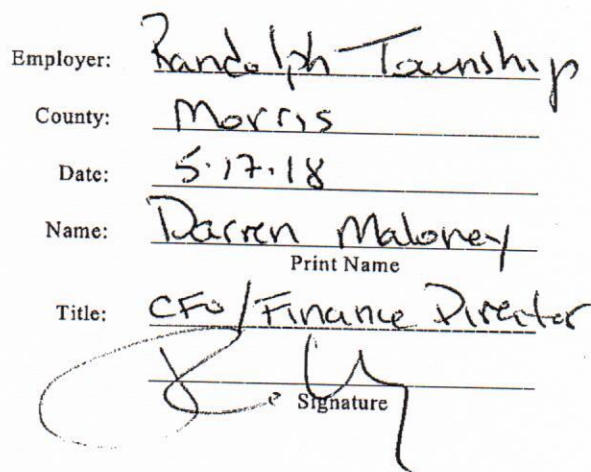 Employer: Randolph Township
County: Morris
Date: 5.17.18
Name: Darren Maloney
Print Name
Title: CFO/Finance Director
Signature